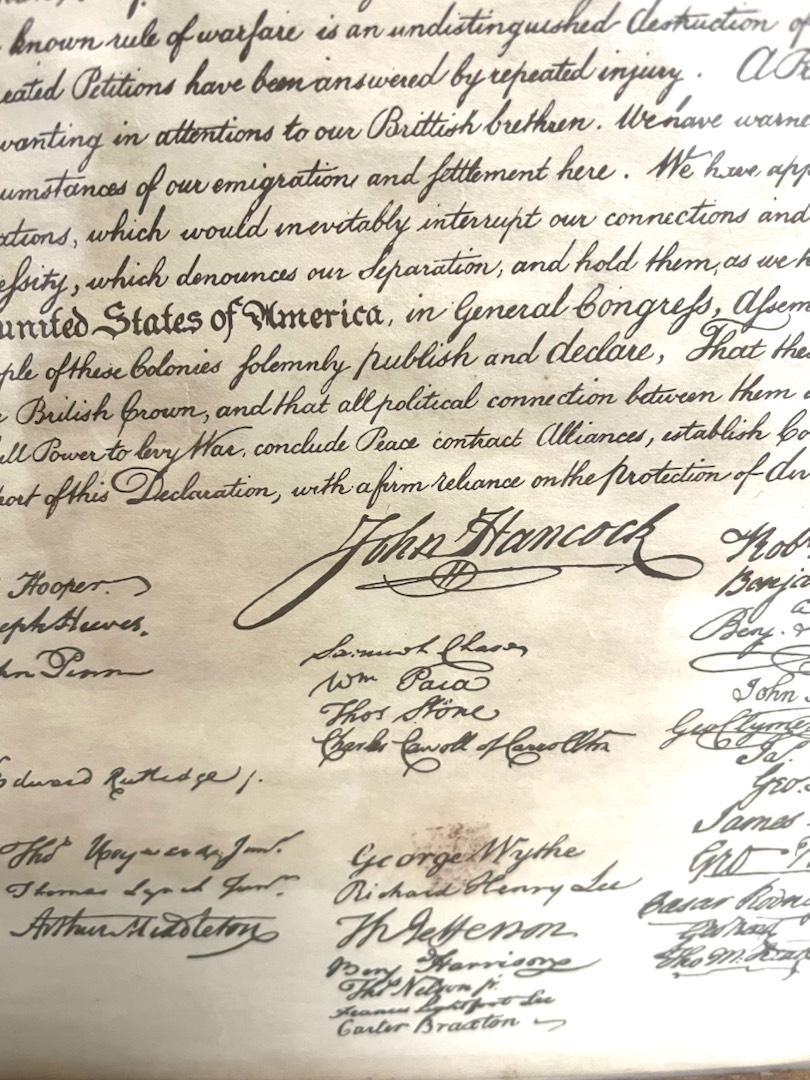 known rule of warfare is an undistinguished destruction of
eated Petitions have been answered by repeated injury. A Pr
wanting in attentions to our Brittish brethren. We have warne
umstances of our emigration and settlement here. We have app
ations, which would inevitably interrupt our connections and
essity, which denounces our Separation, and hold them, as we h
united States of America, in General Congress, Assem
ple of these Colonies solemnly publish and declare, That thes
British Crown, and that all political connection between them
ull Power to levy War, conclude Peace contract Alliances, establish Co
port of this Declaration, with a firm reliance on the protection of div
John Hancock
Hooper.
eph Hewes,
hn Penn
Edward Rutledge /.
Thos Heyward Junr.
Thomas Lynch Junr.
Arthur Middleton
Samuel Chase
Wm Paca
Thos Stone
Charles Carroll of Carrollton
George Wythe
Richard Henry Lee
Th Jefferson
Benj Harrison
Thos Nelson jr.
Francis Lightfoot Lee
Carter Braxton
Robt
Benja
Benj.
John
Geo Clymer
Ja.
Geo.
James
Geo
Caesar Rodn
Geo Read
Tho M. Kean